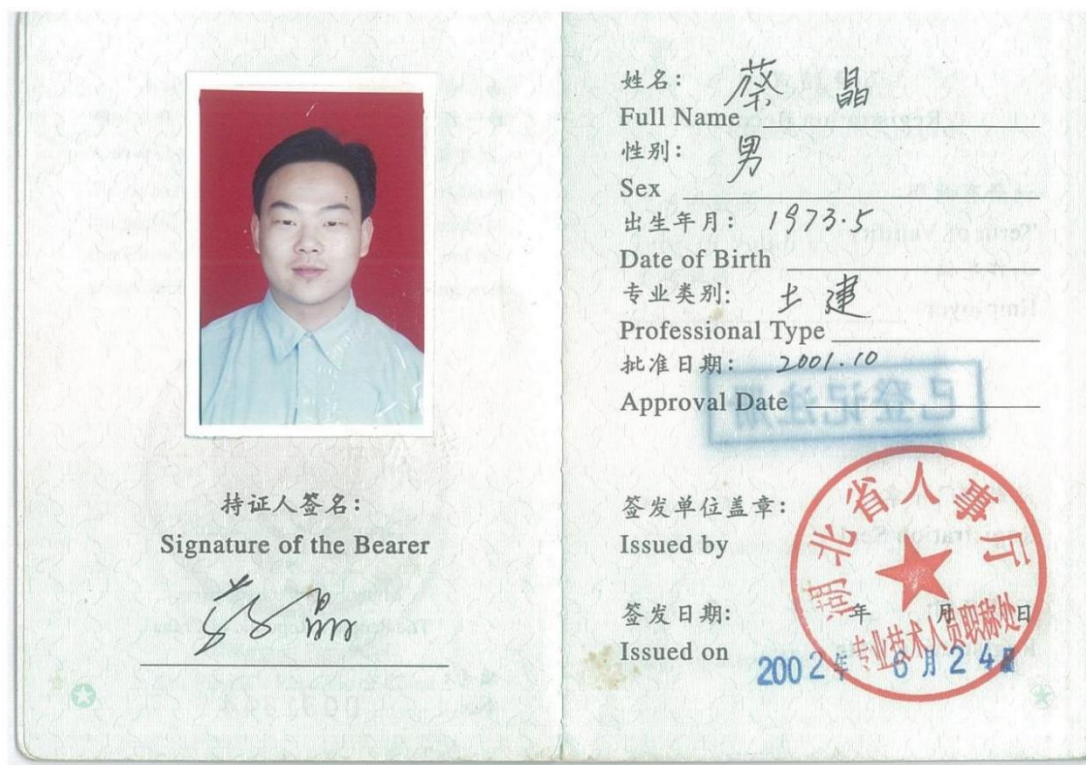 持证人签名:
Signature of the Bearer
蔡晶
姓名: 蔡 晶
Full Name
性别: 男
Sex
出生年月: 1973.5
Date of Birth
专业类别: 土建
Professional Type
批准日期: 2001.10
已登记注册
Approval Date
签发单位盖章:
Issued by
湖北省人事厅
专业技术人员职称处
签发日期: 年 月 日
Issued on
2002年 6月24日